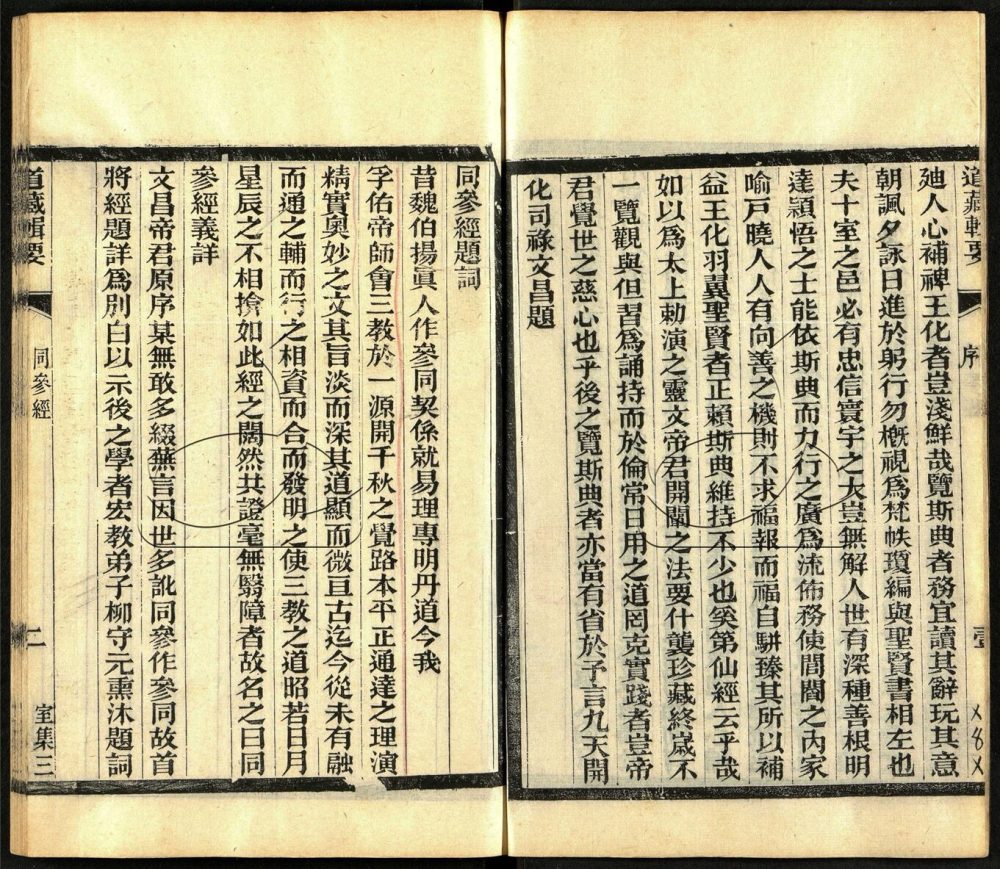 道藏輯要 序 壹
廸人心補裨王化者豈淺鮮哉覽斯典者務宜讀其辭玩其意
朝諷夕詠日進於躬行勿槪視爲梵帙瓊編與聖賢書相左也
夫十室之邑必有忠信寰宇之大豈無解人世有深種善根明
達穎悟之士能依斯典而力行之廣爲流佈務使閭閻之內家
喻戸曉人人有向善之機則不求福報而福自駢臻其所以補
益王化羽翼聖賢者正賴斯典維持不少也奚第仙經云乎哉
如以爲太上勅演之靈文帝君開闡之法要什襲珍藏終歲不
一覽觀與但習爲誦持而於倫常日用之道罔克實踐者豈帝
君覺世之慈心也乎後之覽斯典者亦當有省於予言九天開
化司祿文昌題
同參經題詞
昔魏伯揚眞人作參同契係就易理專明丹道今我
孚佑帝師會三教於一源開千秋之覺路本平正通達之理演
精實奧妙之文其旨淡而深其道顯而微亘古迄今從未有融
而通之輔而行之相資而合而發明之使三教之道昭若日月
星辰之不相揜如此經之闊然共證毫無翳障者故名之曰同
參經義詳
文昌帝君原序某無敢多綴蕪言因世多訛同參作參同故首
將經題詳爲別白以示後之學者宏教弟子柳守元熏沐題詞
道藏輯要 同參經 二 室集三